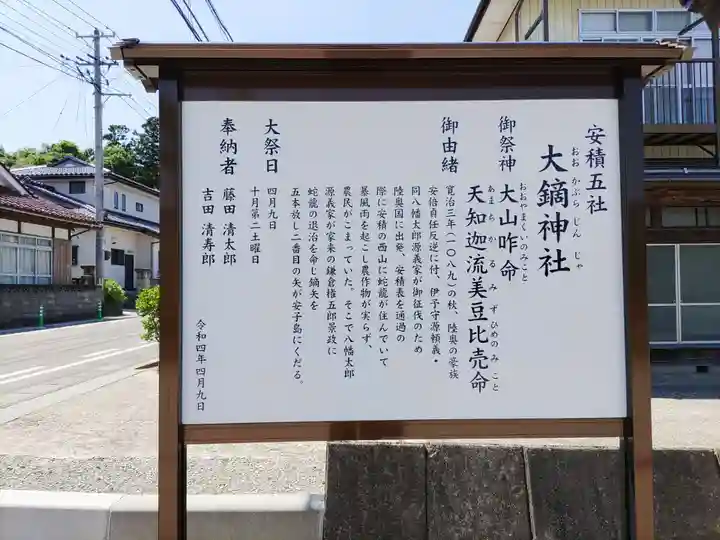 安積五社
大鏑神社
おおかぶらじんじゃ
御祭神
大山咋命
おおやまくいのみこと
天知迦流美豆比売命
あまちかるみずひめのみこと
御由緒
寛治三年(一〇八九)の秋、陸奥の豪族
安倍貞任反逆に付、伊予守源頼義・
同八幡太郎源義家が御征伐のため
陸奥国に出発、安積表を通過の
際に安積の西山に蛇龍が住んでいて
暴風雨を起こし農作物が実らず、
農民がこまっていた。そこで八幡太郎
源義家が家来の鎌倉権五郎景政に
蛇龍の退治を命じ鏑矢を
五本放し二番目の矢が安子島にくだる。
大祭日
四月九日
十月第二土曜日
奉納者
藤田 清太郎
吉田 清寿郎
令和四年四月九日